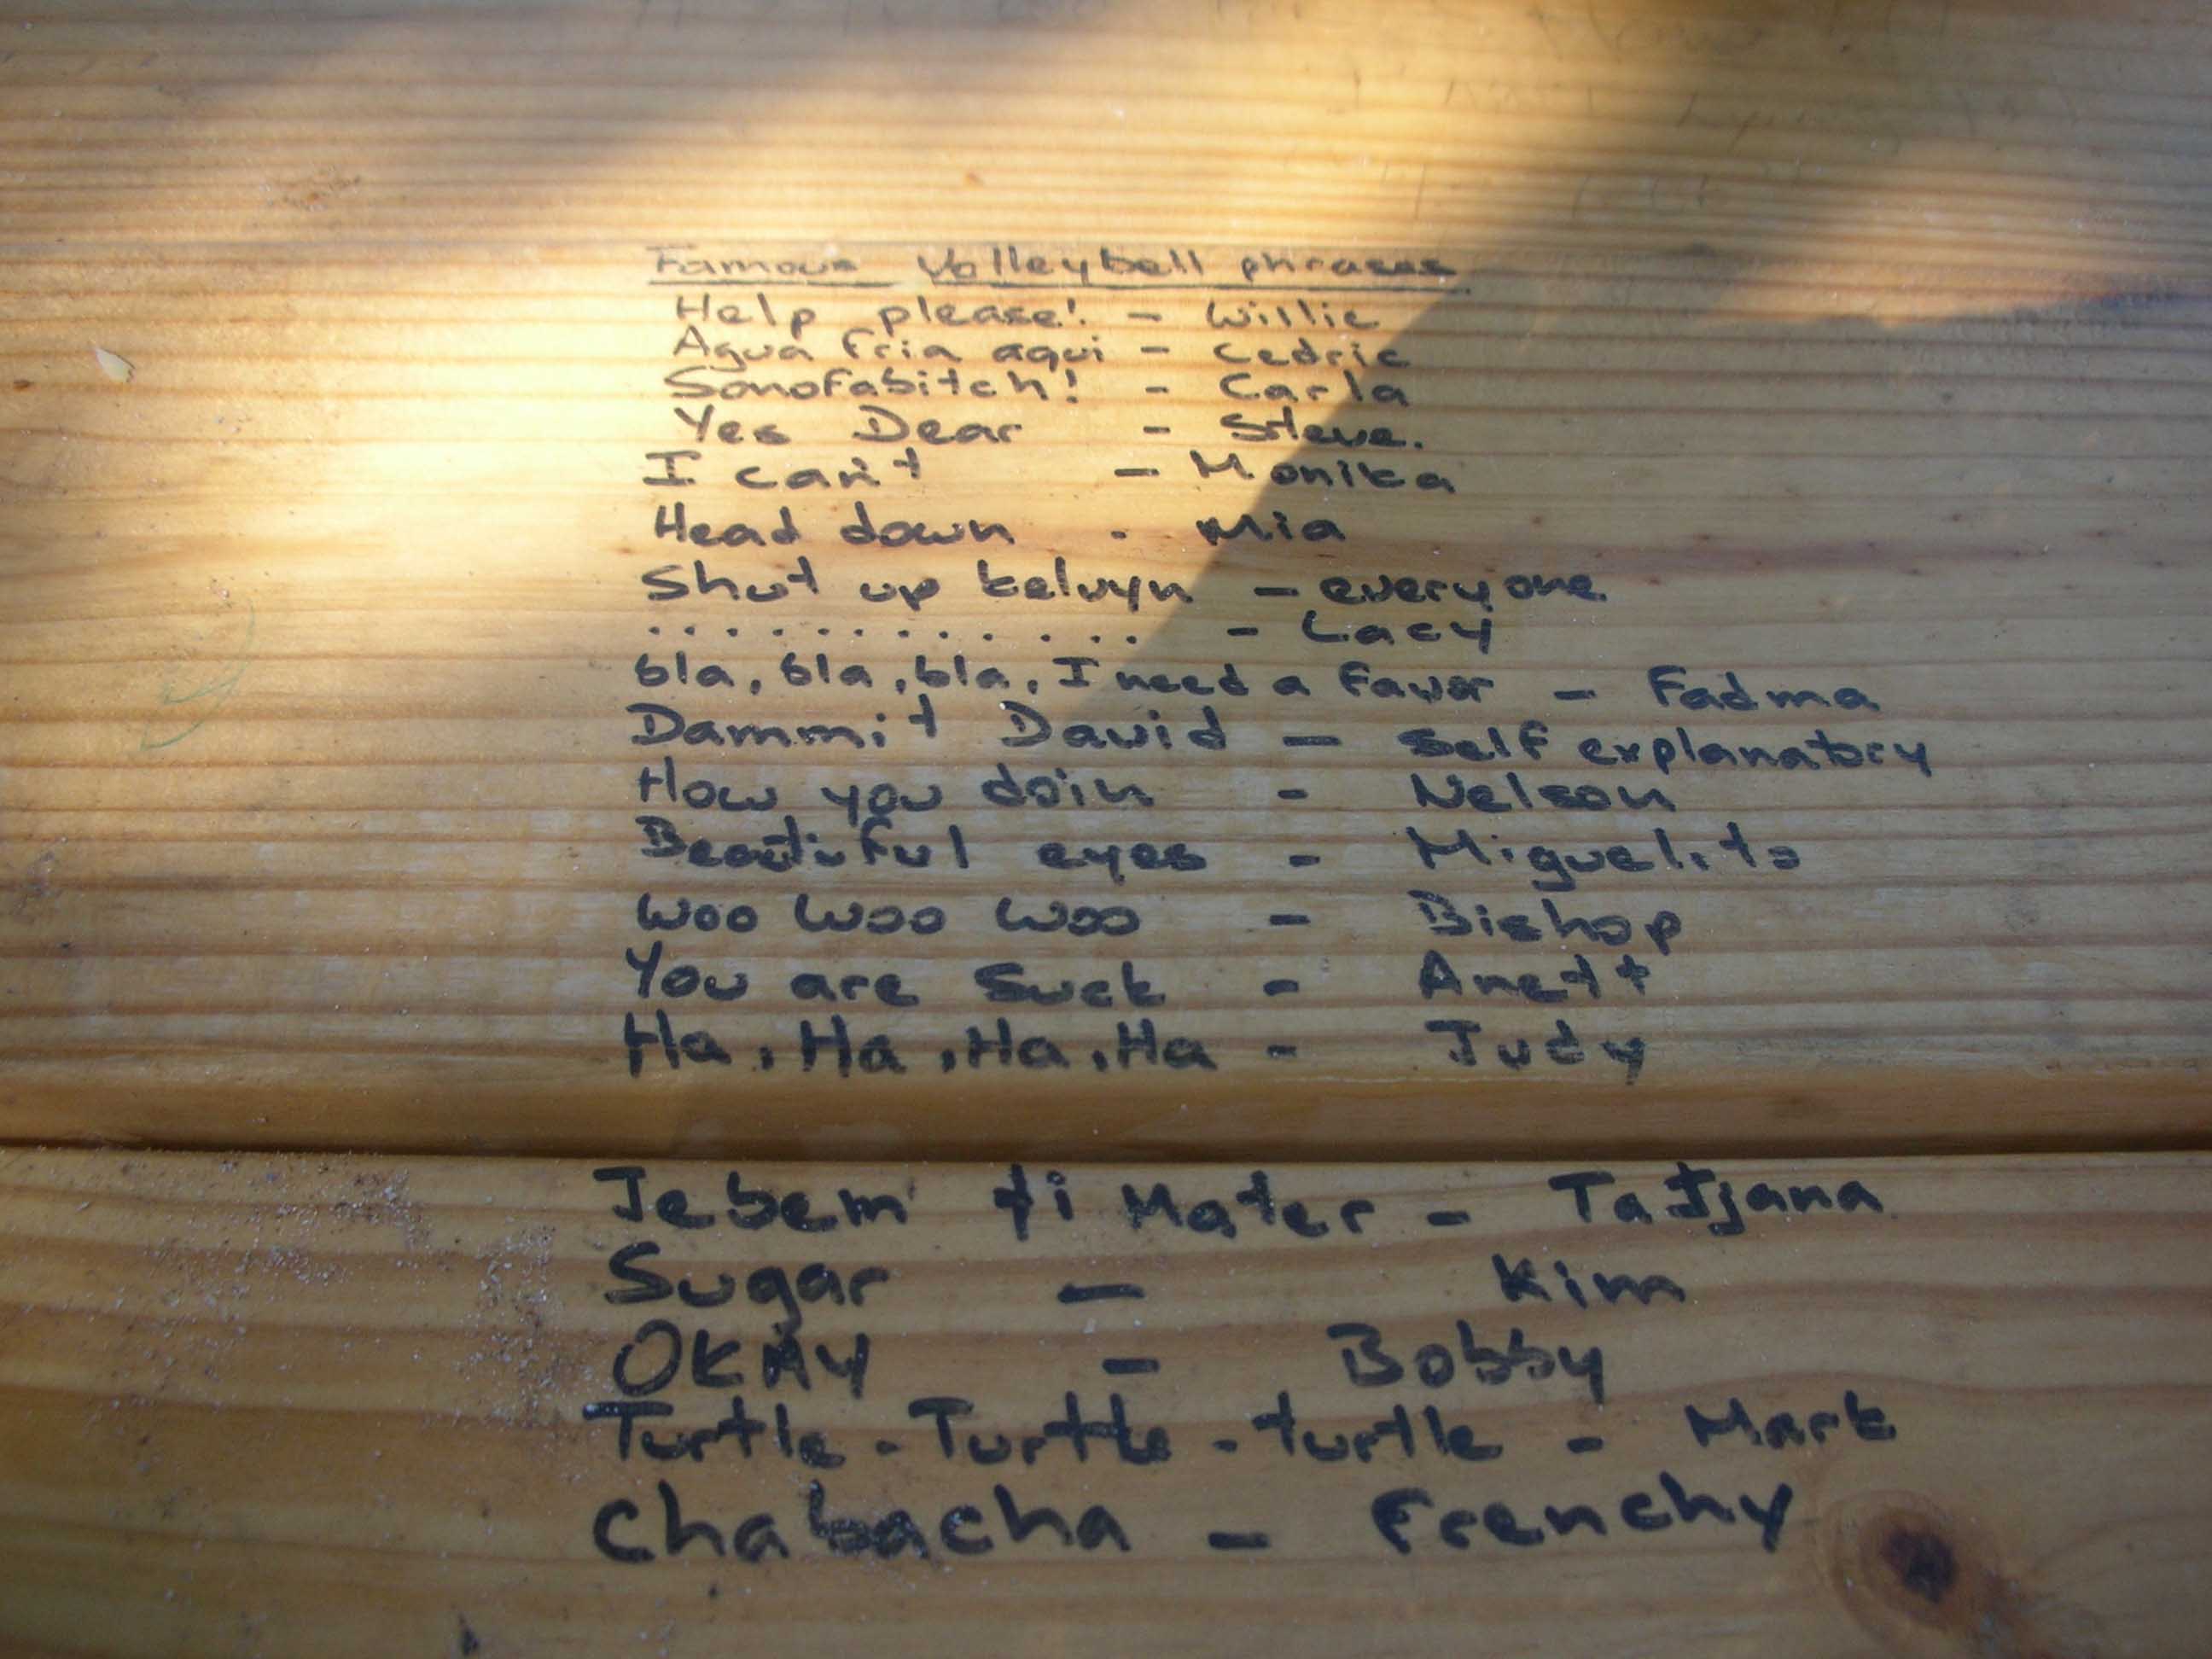 Famous Volleyball phrases
Help please! - Willie
Agua fria aqui - Cedric
Sonofabitch! - Carla
Yes Dear - Steve.
I can't - Monika
Head down - Mia
Shut up kelvyn - everyone
. . . . . . . . . . . . . - Lacy
bla, bla, bla, I need a favor - Fadma
Dammit David - Self explanatory
How you doin - Nelson
Beautiful eyes - Miguelito
Woo Woo Woo - Bishop
You are suck - Anett
Ha, Ha, Ha, Ha - Judy
Jebem ti Mater - Tatjana
Sugar - Kim
OKAY - Bobby
Turtle - Turtle - turtle - Mark
Chabacha - Frenchy